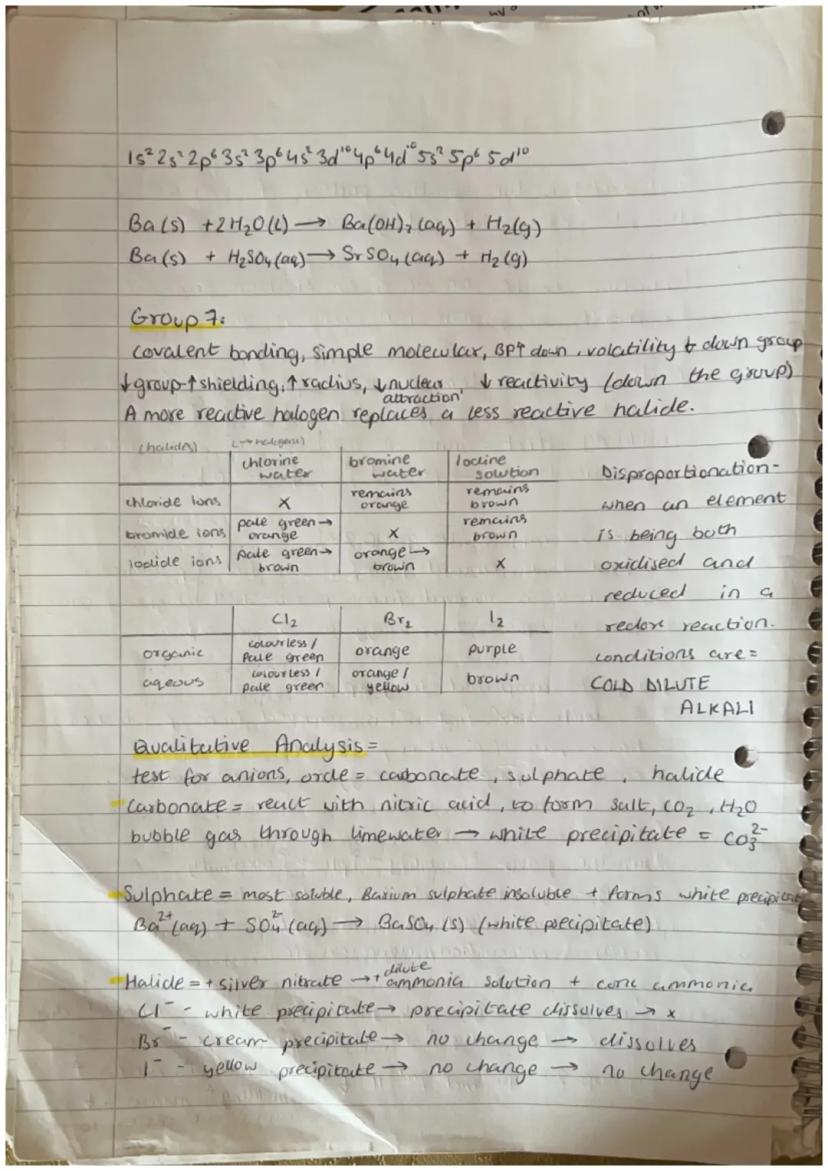 1s² 2s² 2p⁶ 3s² 3p⁶ 4s² 3d¹⁰ 4p⁶ 4d¹⁰ 5s² 5p⁶ 5d¹⁰
Ba(s) + 2H₂O(l) → Ba(OH)₂(aq) + H₂(g)
Ba(s) + H₂SO₄(aq) → SrSO₄(aq) + H₂(g)
Group 7:
covalent bonding, simple molecular, BP↑ down, volatility ↓ down group
↓group-↑shielding, ↑radius, ↓nuclear attraction, ↓ reactivity (down the group)
A more reactive halogen replaces a less reactive halide.
(halides) (→halogens)
chlorine water bromine water Iodine solution
chloride ions x remains orange remains brown
bromide ions pale green→ orange x remains brown
iodide ions pale green→ brown orange→ brown x
Disproportionation-
when an element
is being both
oxidised and
reduced in a
redox reaction.
conditions are=
COLD DILUTE
ALKALI
Cl₂ Br₂ I₂
organic colourless / Pale green orange purple
aqueous colourless / Pale green orange / yellow brown
Qualitative Analysis=
test for anions, orde = carbonate, sulphate, halide
Carbonate= react with nitric acid, to form salt, CO₂, H₂O
bubble gas through limewater → white precipitate = CO₃²⁻
Sulphate = most soluble, Barium sulphate insoluble + forms white precipitate
Ba²⁺(aq) + SO₄²⁻(aq) → BaSO₄(s) (white precipitate)
Halide = + silver nitrate → + dilute ammonia solution + conc ammonia
Cl⁻ - white precipitate → precipitate dissolves → x
Br⁻ - cream precipitate → no change → dissolves
I⁻ - yellow precipitate → no change → no change